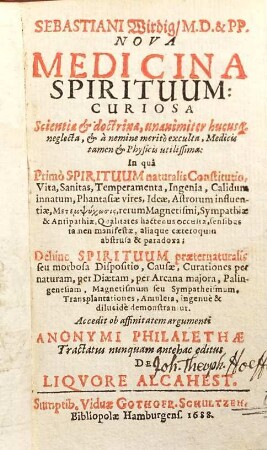 SEBASTIANI Wirdig/M.D.& PP.
NOVA
MEDICINA
SPIRITUUM:
CURIOSA
Scientia & doctrina, unanimiter hucusq;
neglecta, & à nemine meritò exculta, Medicis
tamen & Physicis utilissima:
In quâ
Primò SPIRITUUM naturalis Constitutio,
Vita, Sanitas, Temperamenta, Ingenia, Calidum
innatum, Phantasiæ vires, Ideæ, Astrorum influen-
tiæ, rerum Magnetismi, Sympathiæ
& Antipathiæ, Qualitates hactenus occultæ, sensibus
tamen manifestæ, aliaque cæteroquin
abstrusa & paradoxa;
Dehinc SPIRITUUM præternaturalis
seu morbosa Dispositio, Causæ, Curationes per
naturam, per Diætam, per Arcana majora, Palin-
genesiam, Magnetismum seu Sympatheismum,
Transplantationes, Amuleta, ingenuè &
dilucidè demonstrantur.
Accedit ob affinitatem argumenti
ANONYMI PHILALETHÆ
Tractatus nunquam antehac editus
DE
Joh. Theoph. Hoeff
LIQVORE ALCAHEST.
Sumptib. Viduæ GOTHOFR. SCHULTZEN,
Bibliopolæ Hamburgens. 1688.